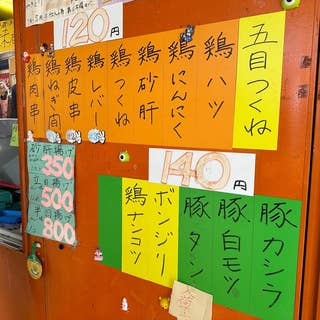 120円
五目つくね
鶏ハツ
鶏にんにく
鶏砂肝
鶏つくね
鶏レバー
鶏皮串
鶏ねぎ間
鶏肉串
140円
豚カシラ
豚白モツ
豚タン
ボンジリ
鶏ナンコツ
砂肝揚げ
350
500
800